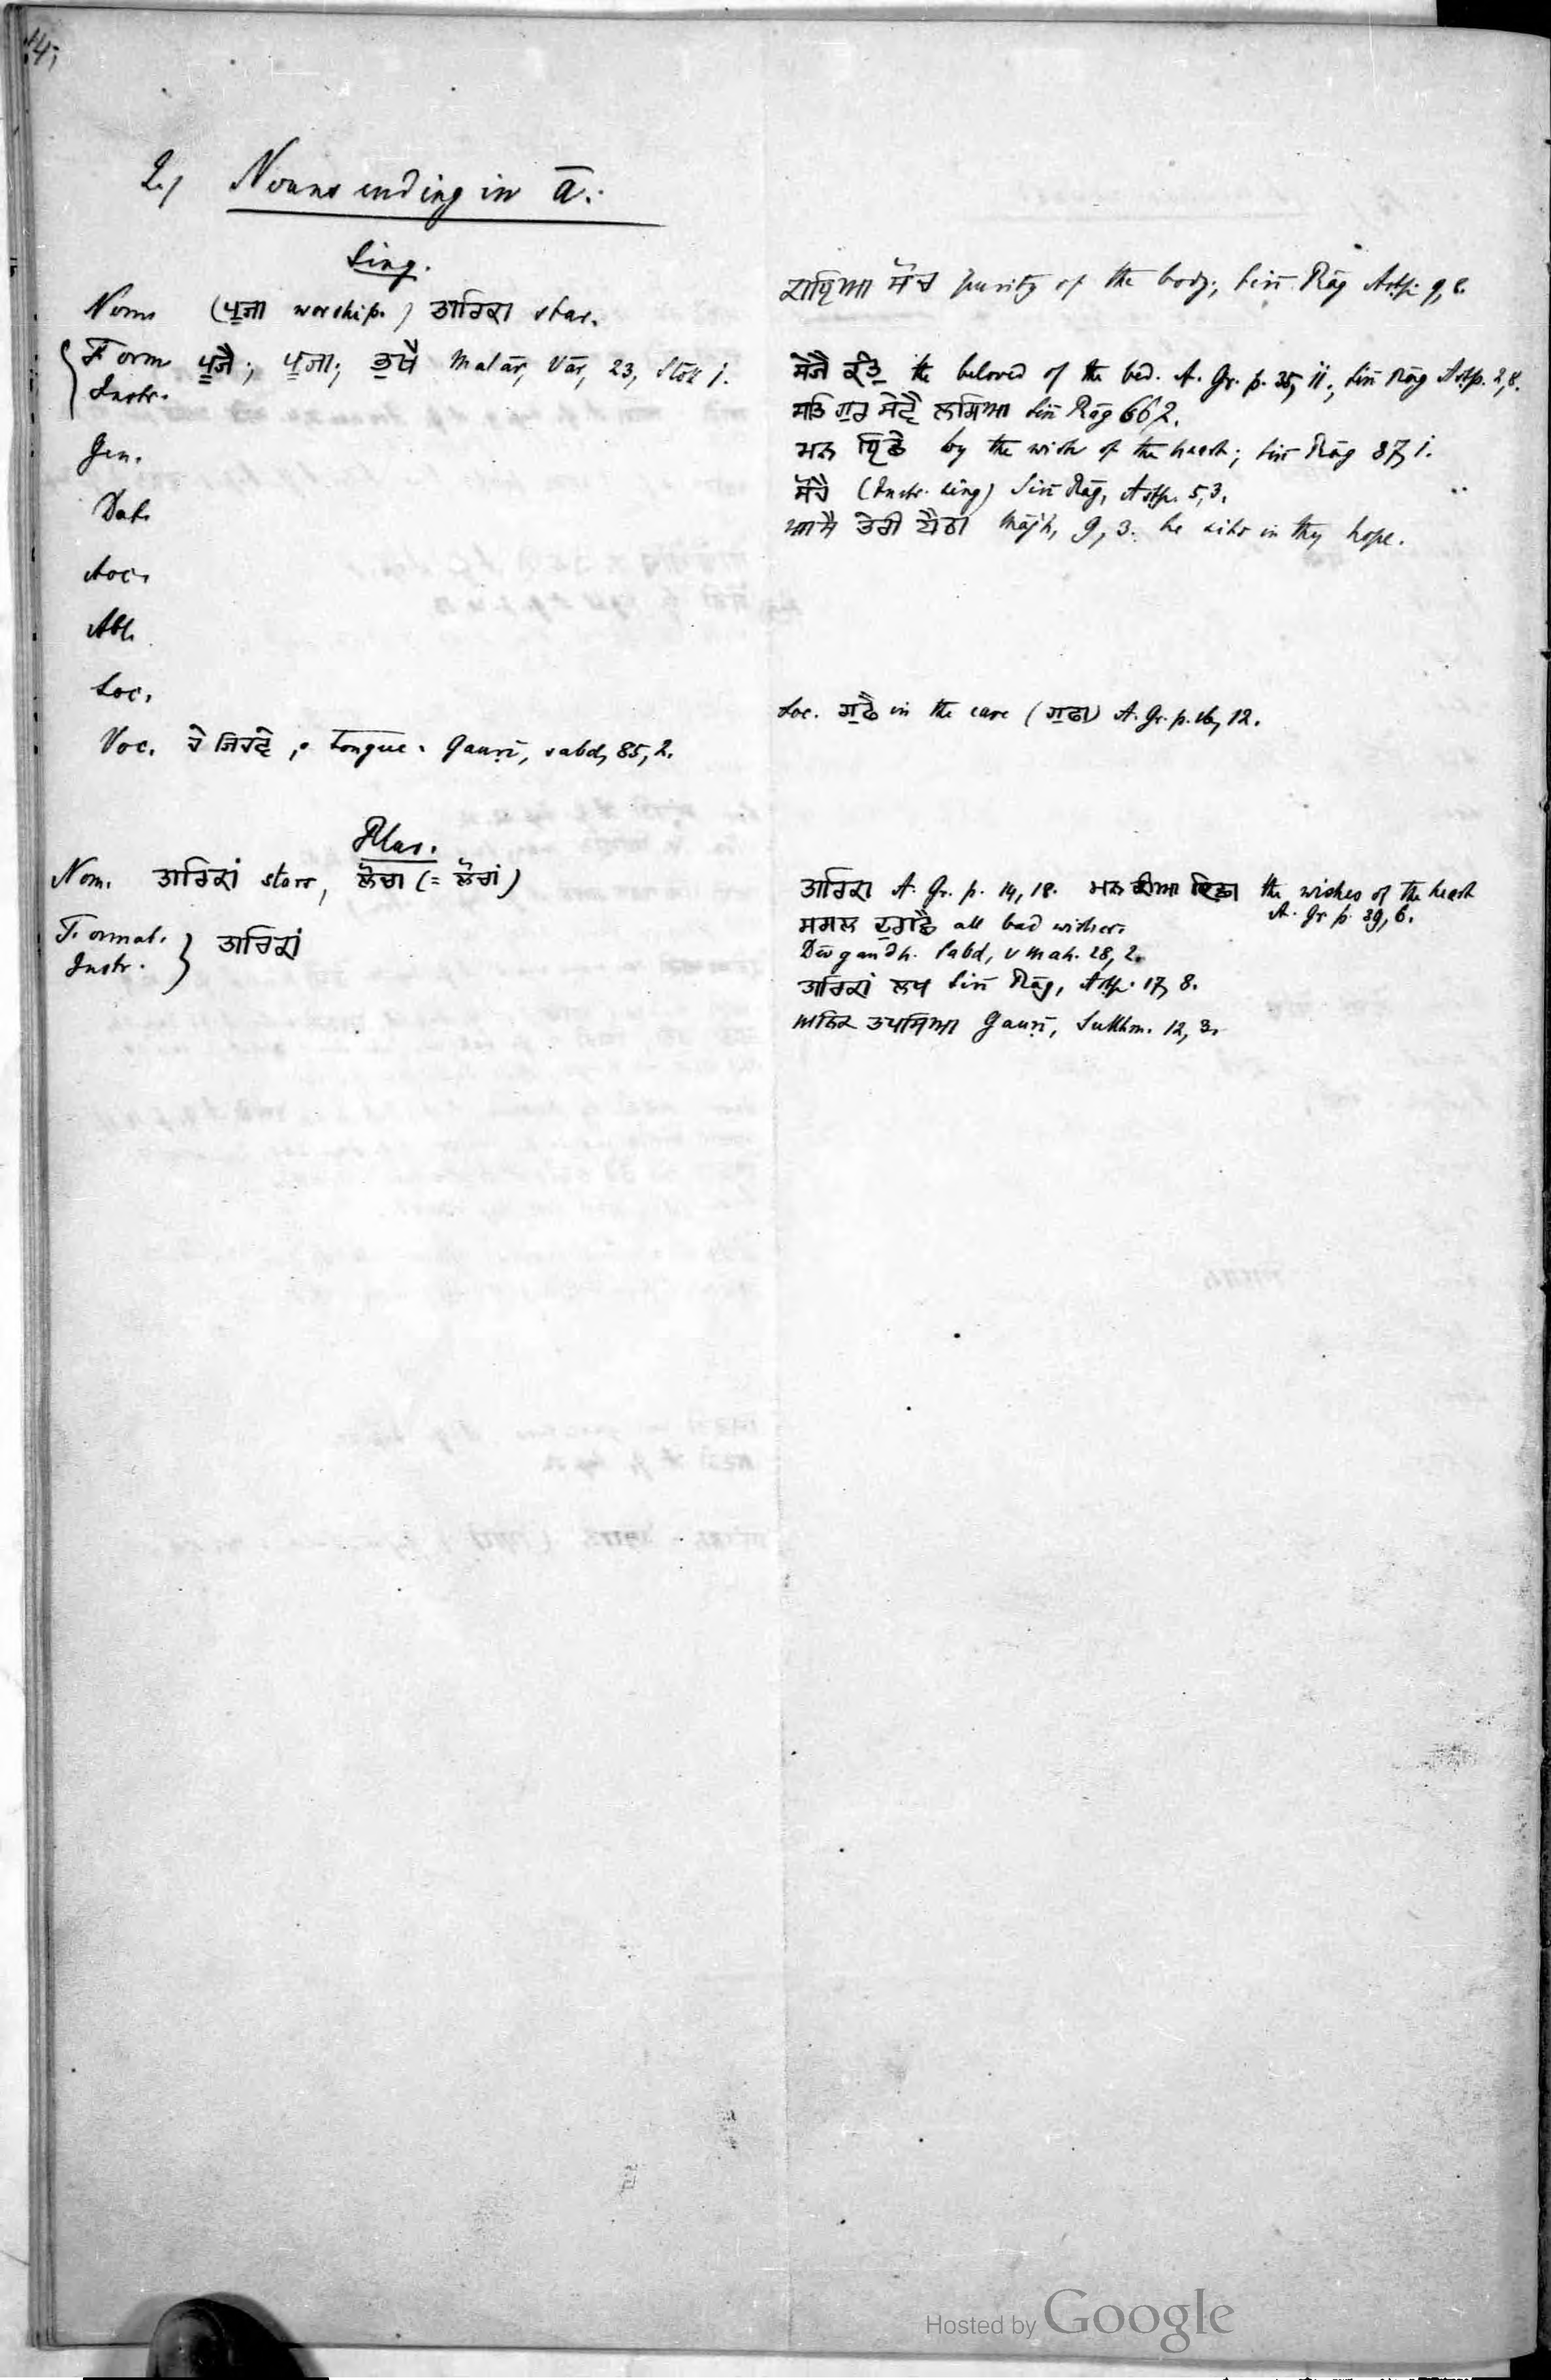 14,
2.) Nouns ending in ā.
Sing.
Nom (ਪੂਜਾ worship.) ਤਾਰਿਕਾ star.
Form ਪੂਜੈ; ਪੂਜਾ; ਭੁਖੈ Malār, Vār, 23, Slōk 1.
Instr.
Gen.
Dat.
Acc.
Abl.
Loc.
Voc. ਹੇ ਜਿਹਵੇ, o tongue. Gauṛī, sabd, 85, 2.
Plur.
Nom. ਤਾਰਿਕਾਂ stars, ਲੋਚਾ (= ਲੋਚਾਂ)
Format. ਤਾਰਿਕਾਂ
Instr.
ਕਾਇਆ ਸੋਚ purity of the body; Sirī Rāg Astp. 9, 8.
ਸੇਜੈ ਕੰਤੁ the beloved of the bed. A. Gr. p. 35, 11., Sirī Rāg Astp. 2, 8.
ਸਤਿਗੁਰ ਸੇਵੈ Sirī Rāg 66, 2.
ਮਨ by the wish of the heart; Sirī Rāg 87, 1.
ਸੋਚੈ (Instr. sing) Sirī Rāg, Astp. 5, 3.
ਆਸੈ ਤੇਰੀ ਬੈਠਾ Mājh, 9, 3. he sits in thy hope.
Loc. ਗੁਫੈ in the cave (ਗੁਫਾ) A. Gr. p. 12.
ਤਾਰਿਕਾ A. Gr. p. 14, 18. ਮਨ ਕੀਆ ਇਛਾ the wishes of the heart
A. Gr. p. 39, 6.
ਸਗਲ all bad wishes.
Dēvgandh. Sabd, v Mah. 28, 2.
ਤਾਰਿਕਾਂ ਲਖ Sirī Rāg, Astp. 17, 8.
ਅਨਿਕ ਤਪਸਿਆ Gauṛī, Sukhm. 12, 3.
Hosted by Google